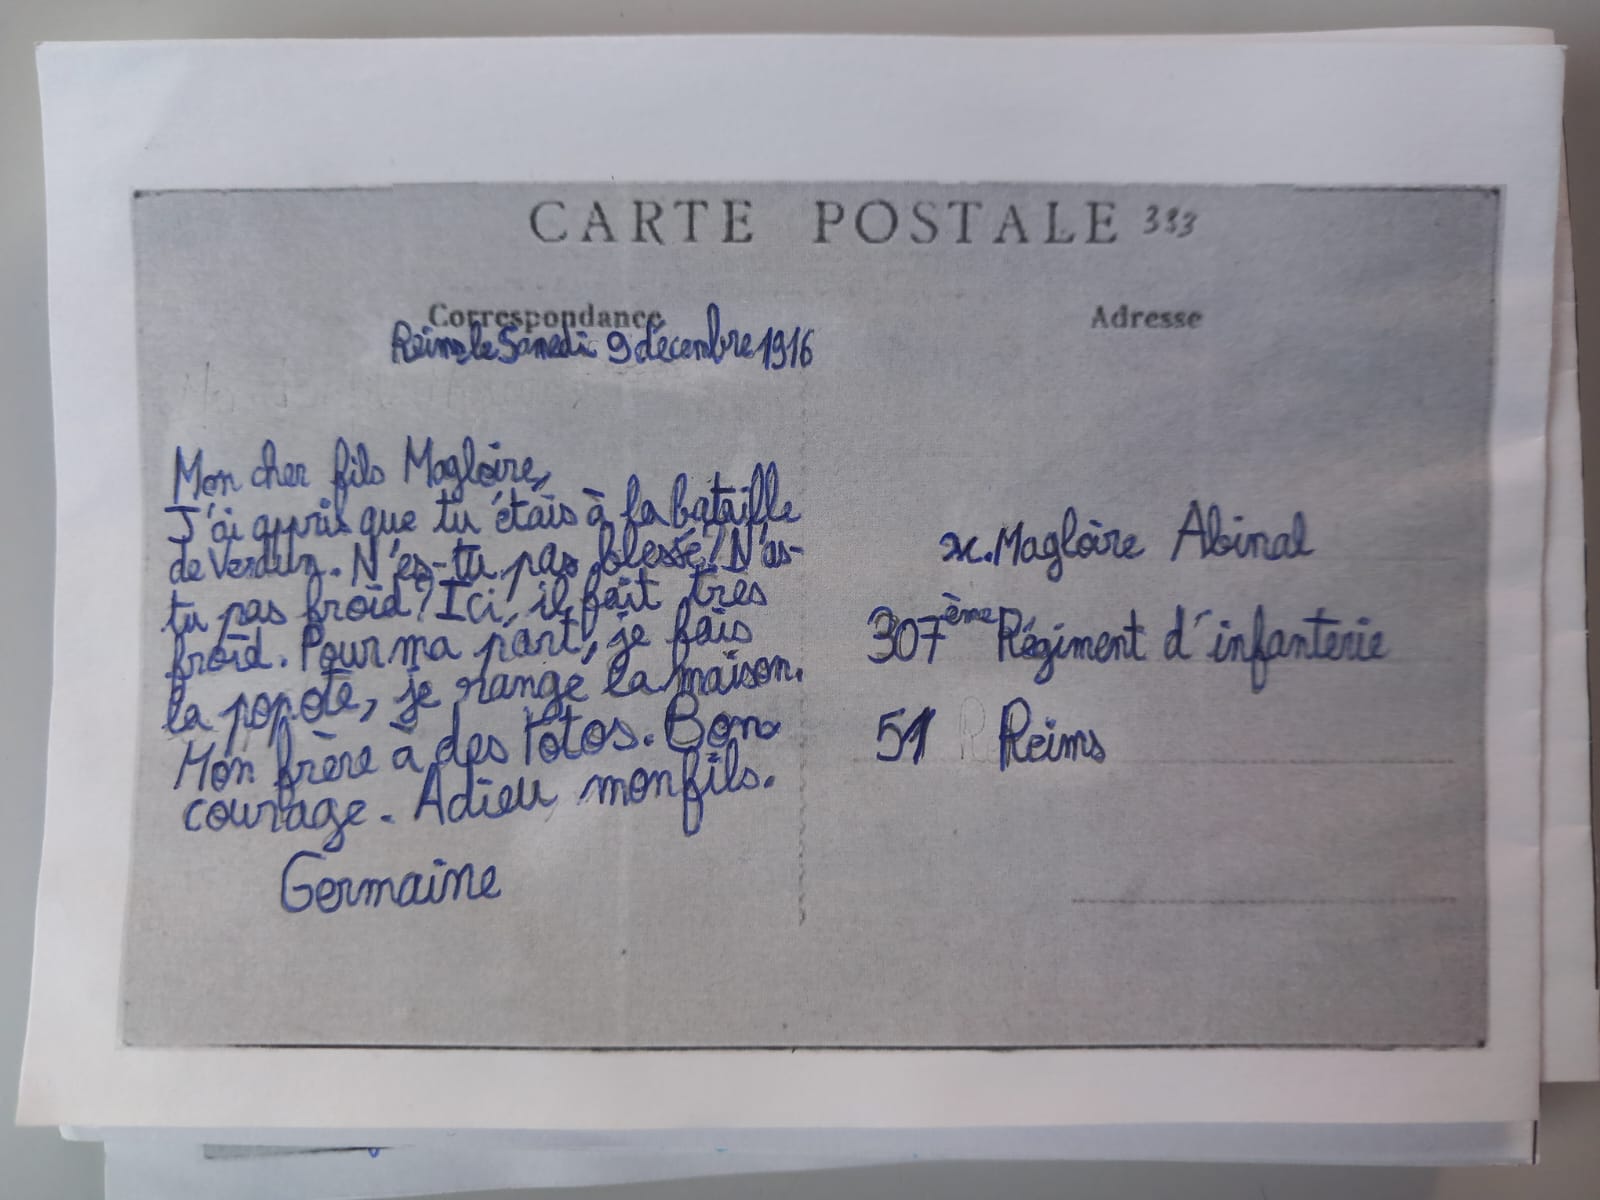 CARTE POSTALE 383
Correspondance
Adresse
Reims le Samedi 9 décembre 1916
Mon cher fils Magloire,
J'ai appris que tu étais à la bataille
de Verdun. N'es-tu pas blessé? N'as-
tu pas froid? Ici, il fait tres
froid. Pour ma part, je fais
la popote, je range la maison.
Mon frère à des totos. Bon
courage. Adieu mon fils.
Germaine
M. Magloire Abinal
307ème Régiment d'infanterie
51 Reims